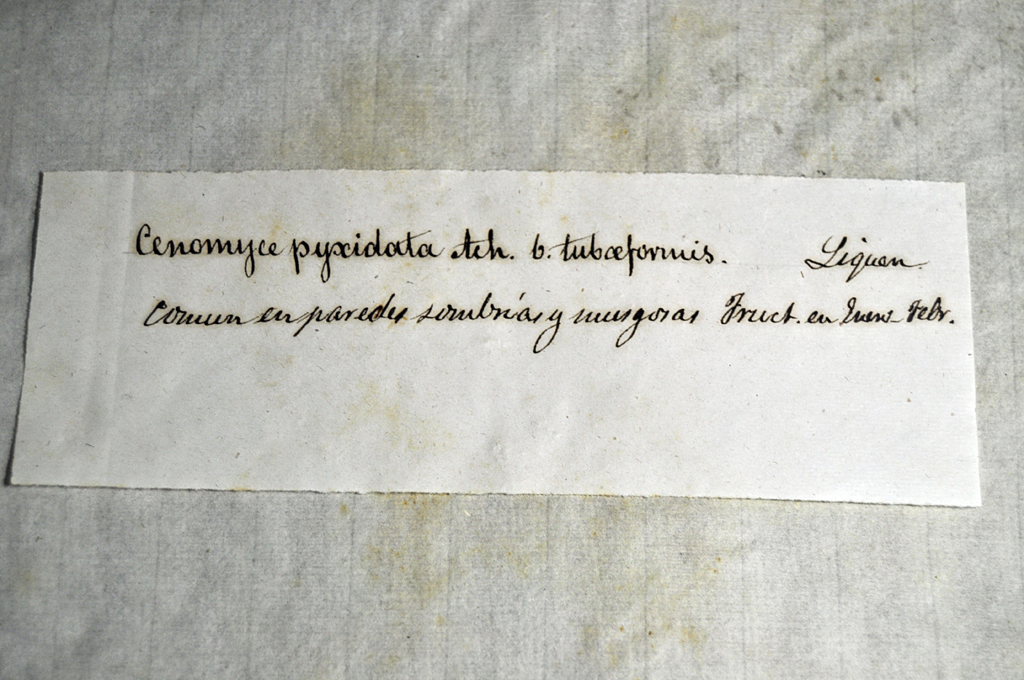 Cenomyce pyxidata Ach. b. tubæformis. Liquen
Comun en paredes sombrías y musgosas Fruct. en Enero Febr.